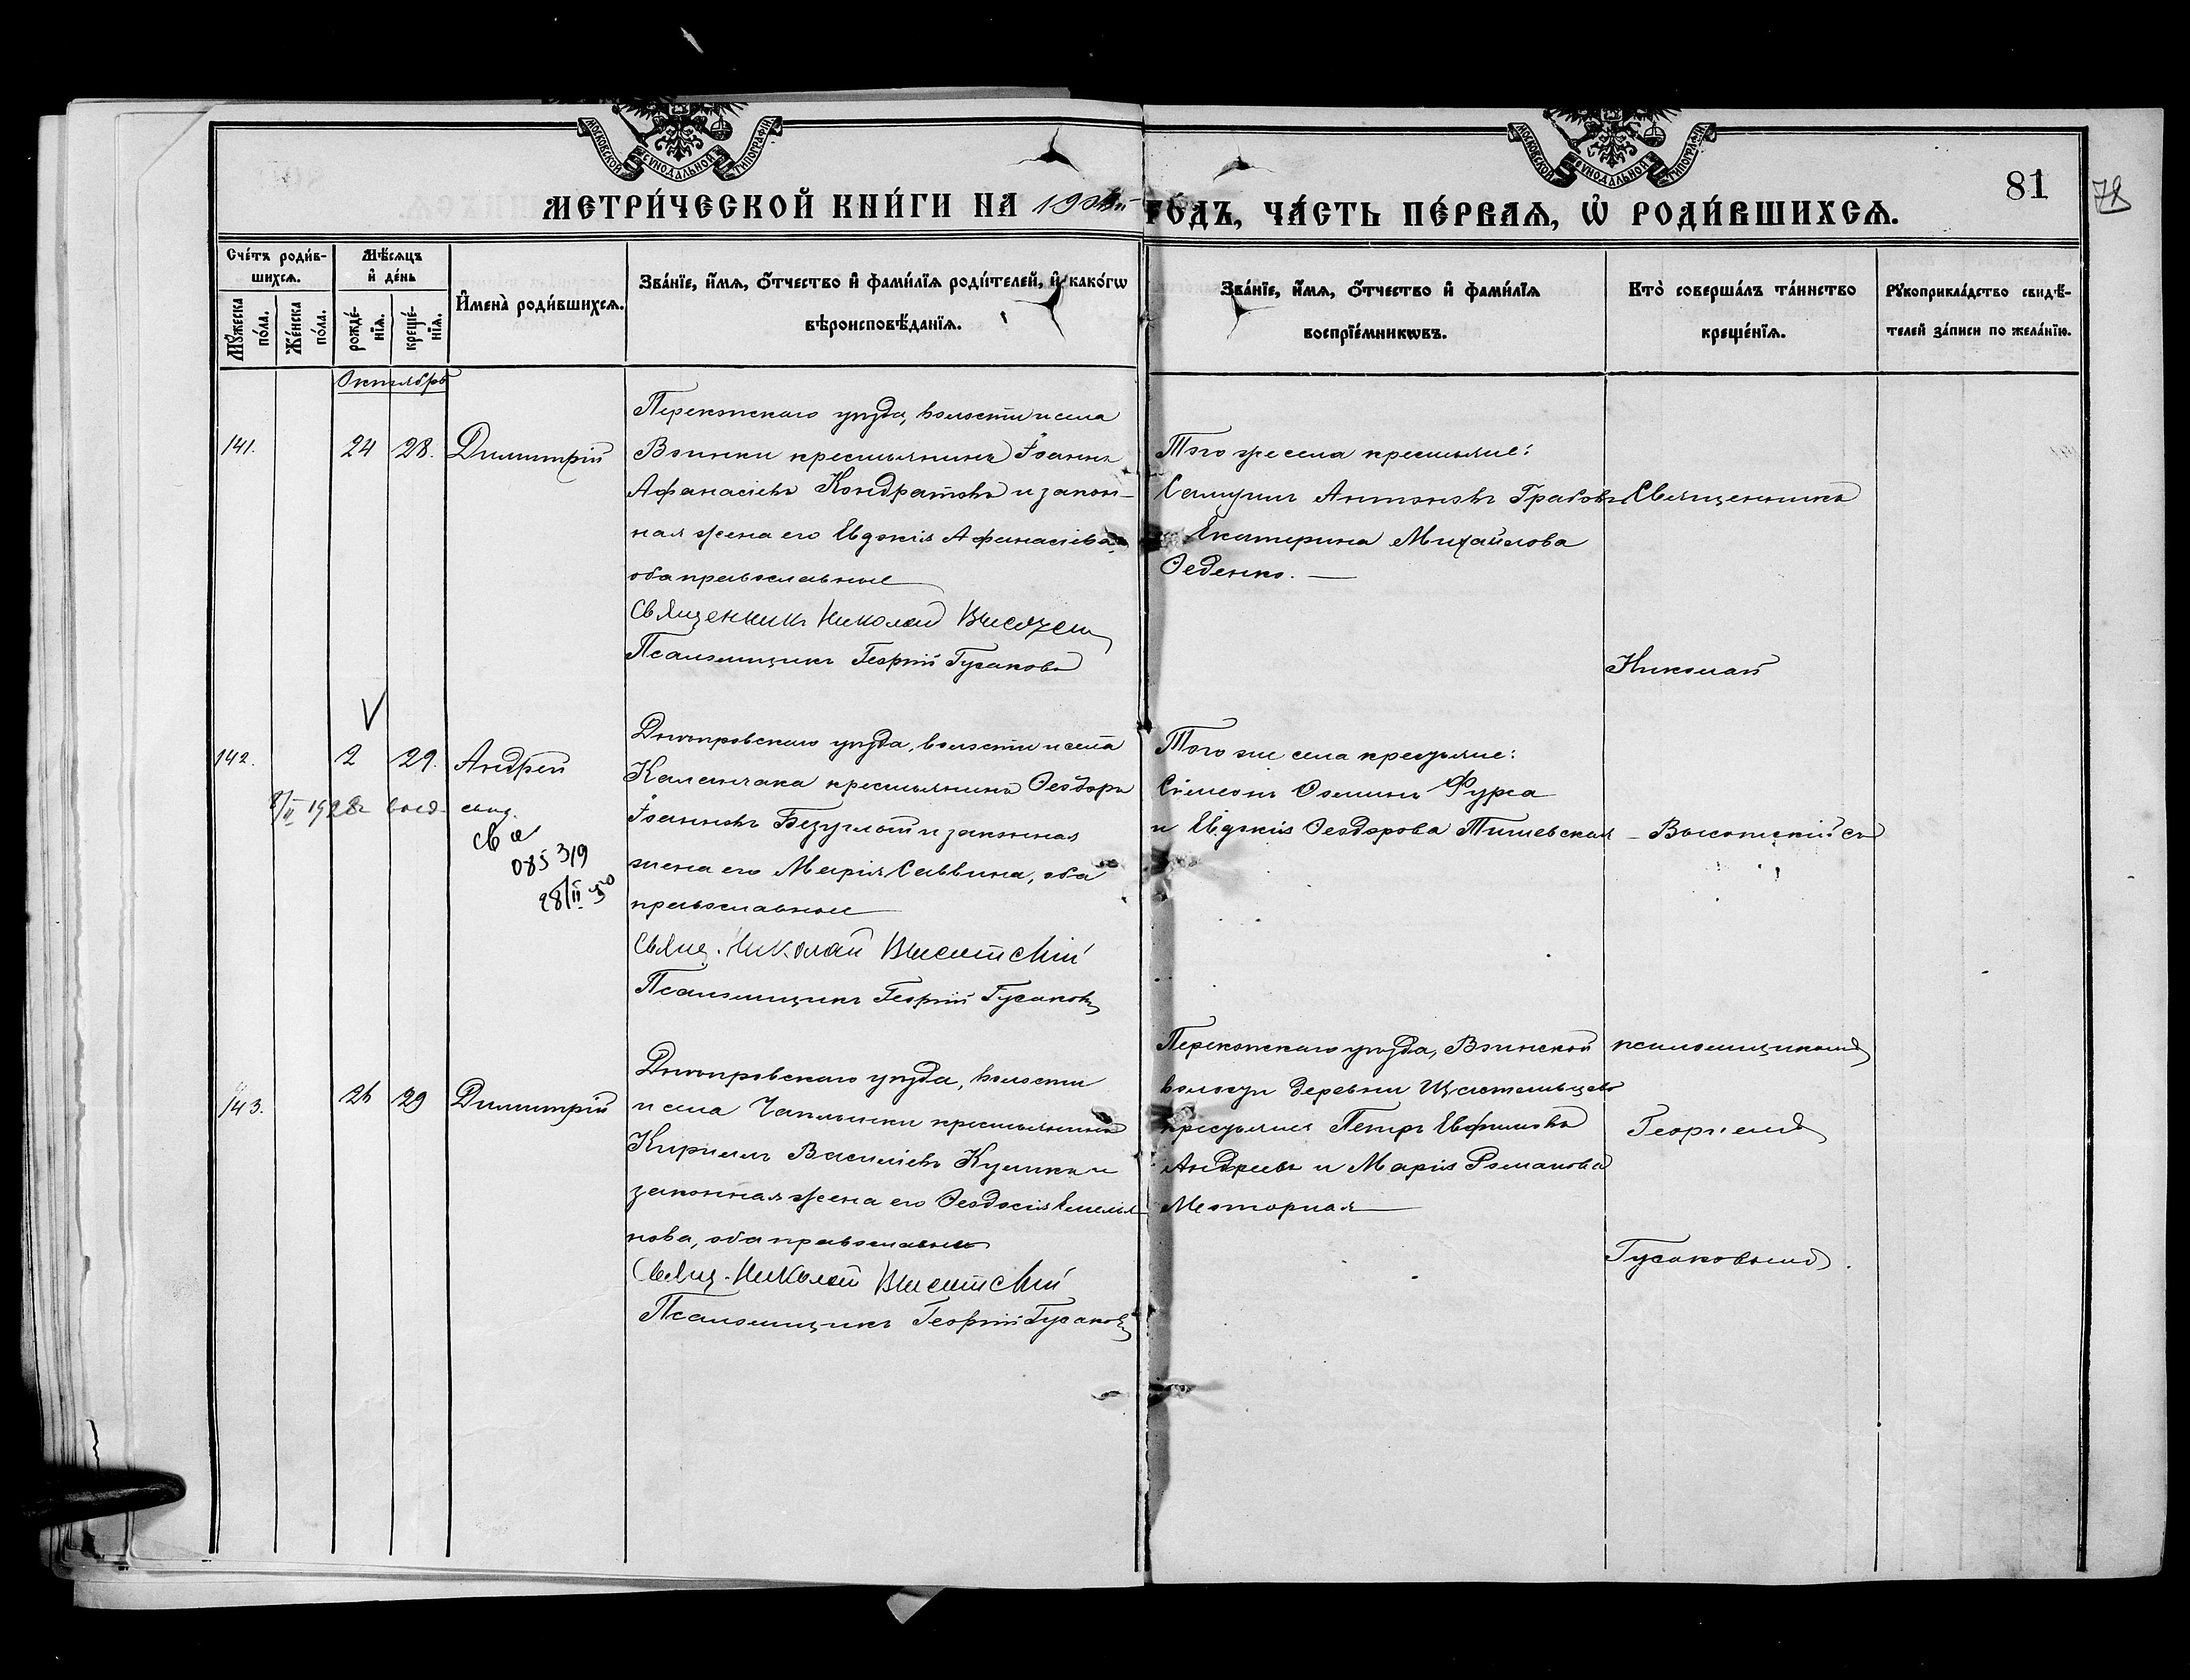 МОСКОВСКОЙ СѴНОДАЛЬНОЙ ТИПОГРАФІИ
МОСКОВСКОЙ СѴНОДАЛЬНОЙ ТИПОГРАФІИ
МЕТРИ́ЧЕСКОЙ КНИ́ГИ НА
ГО́ДЪ, ЧА́СТЬ ПЕ́РВАѦ, Ѡ҆ РОДИ́ВШИХСѦ.
81
78
Сче́тъ роди́в-
шихсѧ.
Мꙋ́жеска по́ла.
Же́нска по́ла.
Мѣ́сѧцъ
и҆ де́нь
рожде́-
нїѧ.
креще́-
нїѧ.
И҆мена̀ роди́вшихсѧ.
Зва́нїе, и҆́мѧ, ѻ҆́тчество и҆ фами́лїѧ роди́телей, и҆ како́гѡ
вѣроисповѣ́данїѧ.
Зва́нїе, и҆́мѧ, ѻ҆́тчество и҆ фами́лїѧ
воспрїе́мникѡвъ.
Кто̀ соверша́лъ та́инство
креще́нїѧ.
Рꙋкоприкла́дство свидѣ́-
телей за́писи по жела́нїю.
Октябрь
141.
24
28.
Димитрій
Перекопскаго уѣзда, волости и села
Воинки крестьянинъ Іоаннъ
Афанасіевъ Кондратовъ и закон-
ная жена его Евдокія Афанасіева,
оба православные
Священникъ Николай
Псаломщикъ Георгій Гусаковъ
Того же села крестьяне:
Самуилъ Антоновъ
и Екатерина Михайлова
Феденко.
Священникъ
Николай
142.
2
29.
Андрей
1928г выд. свид.
св а
085319
28/II 50
Днѣпровскаго уѣзда, волости и села
Каланчака крестьянинъ Феодоръ
Іоанновъ Безуглый и законная
жена его Марія Саввина, оба
православные
Свящ. Николай Высотскій
Псаломщикъ Георгій Гусаковъ
Того же села крестьяне:
Сімеонъ Фурса
и Евдокія Феодорова Тишевская
Высотскій съ
143.
26
29
Димитрій
Днѣпровскаго уѣзда, волости
и села Чаплынки крестьянинъ
Кириллъ Василіевъ и
законная жена его Феодосія Емелья
нова, оба православные
Свящ. Николай Высотскій
Псаломщикъ Георгій Гусаковъ
Перекопскаго уѣзда, Воинской
волости деревни
крестьяне Петръ Евфимовъ
Андреевъ и Марія Романова
Моторная
псаломщикомъ
Георгіемъ
Гусаковымъ.